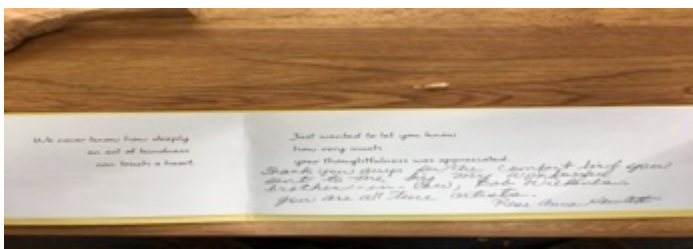 We never know how deeply
an act of kindness
can touch a heart.
Just wanted to let you know
how very much
your thoughtfulness was appreciated.
Thank you guys for the comfort bird you
sent to me by my wonderful
brother-in-law, Bob
you are all true artists.
Rose Anne